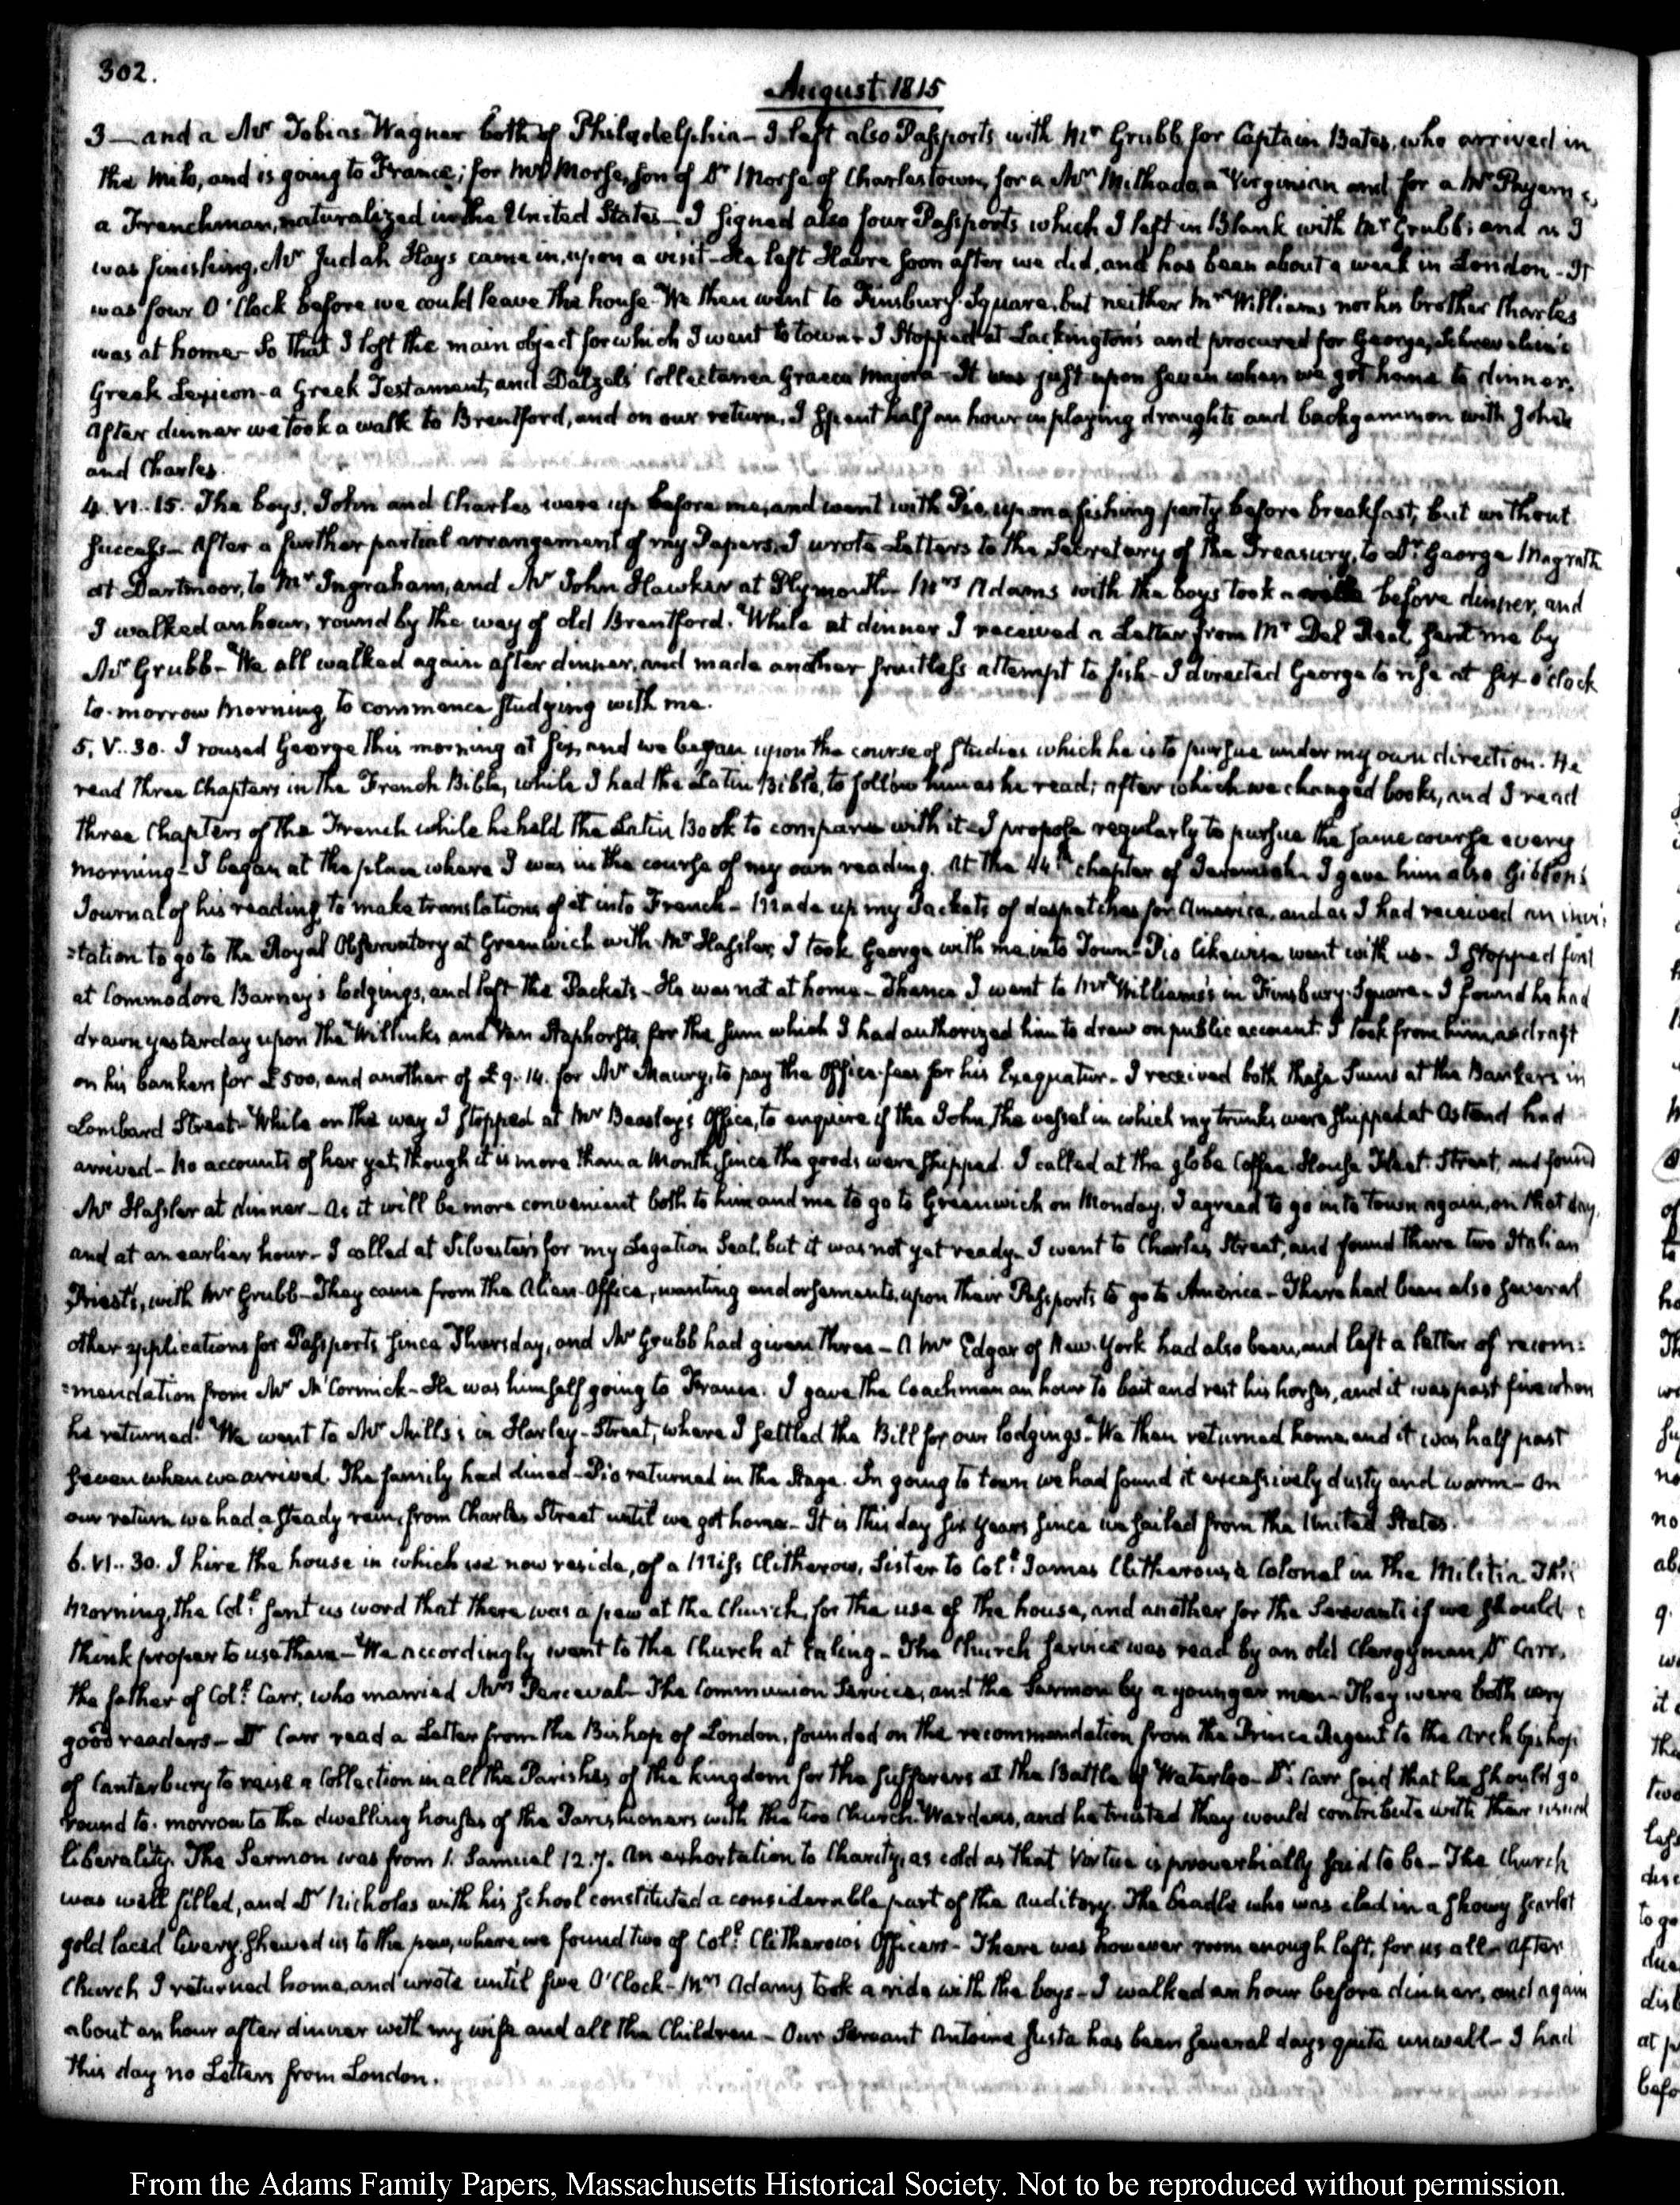 302.
August 1815
3 — and a Mr Tobias Wagner both of Philadelphia — I left also Passports with Mr Grubb for Captain Bates, who arrived in
the Milo, and is going to France; for Mr Morse, son of Dr Morse of Charlestown, for a Mr Milhado, a Virginian and for a Mr
a Frenchman, naturalized in the United States — I signed also four Passports which I left in Blank with Mr Grubb; and as I
was finishing, Mr Judah Hays came in, upon a visit — He left Havre soon after we did, and has been about a week in London — It
was four O'Clock before we could leave the house — We then went to Finsbury Square, but neither Mr Williams nor his brother Charles
was at home — So that I lost the main object for which I went to town — I stopped at Lackington's and procured for George, Schrevelius's
Greek Lexicon — a Greek Testament, and Dalzel's Collectanea Graeca Majora — It was just upon seven when we got home to dinner.
After dinner we took a walk to Brentford, and on our return, I spent half an hour in playing draughts and backgammon with John
and Charles.
4. VI. 15. The boys, John and Charles were up before me, and went with Pio, upon a fishing party before breakfast, but without
success — After a further partial arrangement of my Papers, I wrote Letters to the Secretary of the Treasury, to Dr George Magrath
at Dartmoor, to Mr Ingraham, and Mr John Hawker at Plymouth — Mrs Adams with the boys took a walk before dinner, and
I walked an hour, round by the way of old Brentford. While at dinner I received a Letter from Mr Del Real, sent me by
Mr Grubb — We all walked again after dinner, and made another fruitless attempt to fish — I directed George to rise at six o'clock
to-morrow Morning, to commence studying with me.
5. V. 30. I roused George this morning at six, and we began upon the course of studies which he is to pursue under my own direction. He
read three Chapters in the French Bible, while I had the Latin Bible, to follow him as he read; after which we changed books, and I read
three Chapters of the French while he held the Latin Book to compare with it — I propose regularly to pursue the same course every
morning — I began at the place where I was in the course of my own reading. At the 44th chapter of Jeremiah — I gave him also Gibbon's
Journal of his reading, to make translations of it into French — Made up my Packets of despatches for America, and as I had received an invi:
:tation to go to the Royal Observatory at Greenwich with Mr Hassler, I took George with me into Town — Pio likewise went with us — I stopped first
at Commodore Barney's lodgings, and left the Packets — He was not at home — Thence I went to Mr Williams's in Finsbury Square — I found he had
drawn yesterday upon the Willinks and Van Staphorsts, for the sum which I had authorized him to draw on public account. I took from him, a draft
on his bankers for £500, and another of £9.14. for Mr Maury, to pay the Office fees for his Exequatur — I received both these Sums at the Bankers in
Lombard Street — While on the way I stopped at Mr Beasley's Office, to enquire if the John, the vessel in which my trunks were shipped at Ostend had
arrived — No accounts of her yet, though it is more than a Month, since the goods were shipped. I called at the globe Coffee House Fleet Street, and found
Mr Hassler at dinner — As it will be more convenient both to him and me to go to Greenwich on Monday, I agreed to go into town again, on that day,
and at an earlier hour — I called at Silvester's for my Legation Seal, but it was not yet ready — I went to Charles Street, and found there two Italian
Priests, with Mr Grubb — They came from the Alien-Office, wanting endorsements, upon their Passports to go to America — There had been also several
other applications for Passports since Thursday, and Mr Grubb had given three — A Mr Edgar of New York had also been, and left a letter of recom:
:mendation from Mr McCormick — He was himself going to France. I gave the Coachman an hour to bait and rest his horses, and it was past five when
he returned. We went to Mr Mills's in Harley-Street, where I settled the Bill for our lodgings — We then returned home, and it was half past
seven when we arrived. The family had dined — Pio returned in the Stage. In going to town we had found it excessively dusty and warm — On
our return we had a steady rain, from Charles Street until we got home — It is this day six years since we sailed from the United States.
6. VI. 30. I hire the house in which we now reside, of a Miss Clitherow, Sister to Coll. James Clitherow, a Colonel in the Militia — This
Morning, the Coll. sent us word that there was a pew at the Church, for the use of the house, and another for the Servants if we should
think proper to use them — We accordingly went to the Church at Ealing — The Church service was read by an old Clergyman, Dr Carr,
the father of Coll. Carr, who married Mrs Perceval — The Communion Service, and the Sermon by a younger man — They were both very
good readers — Dr Carr read a Letter from the Bishop of London, founded on the recommendation from the Prince Regent to the Archbishop
of Canterbury to raise a Collection in all the Parishes of the kingdom for the sufferers at the Battle of Waterloo — Dr Carr said that he should go
round to-morrow to the dwelling houses of the Parishioners with the two Church-Wardens, and he trusted they would contribute with their usual
liberality. The Sermon was from 1. Samuel 12.7. An exhortation to Charity, as cold as that Virtue is proverbially said to be — The Church
was well filled, and Dr Nicholas with his school constituted a considerable part of the auditory. The beadle who was clad in a showy scarlet
gold laced livery, shewed us to the pew, where we found two of Coll. Clitherow's Officers — There was however room enough left, for us all — After
Church I returned home, and wrote until five O'Clock — Mrs Adams took a ride with the boys — I walked an hour before dinner, and again
about an hour after dinner with my wife and all the Children — Our Servant Antoine Giusta has been several days quite unwell — I had
this day no Letters from London.
From the Adams Family Papers, Massachusetts Historical Society. Not to be reproduced without permission.